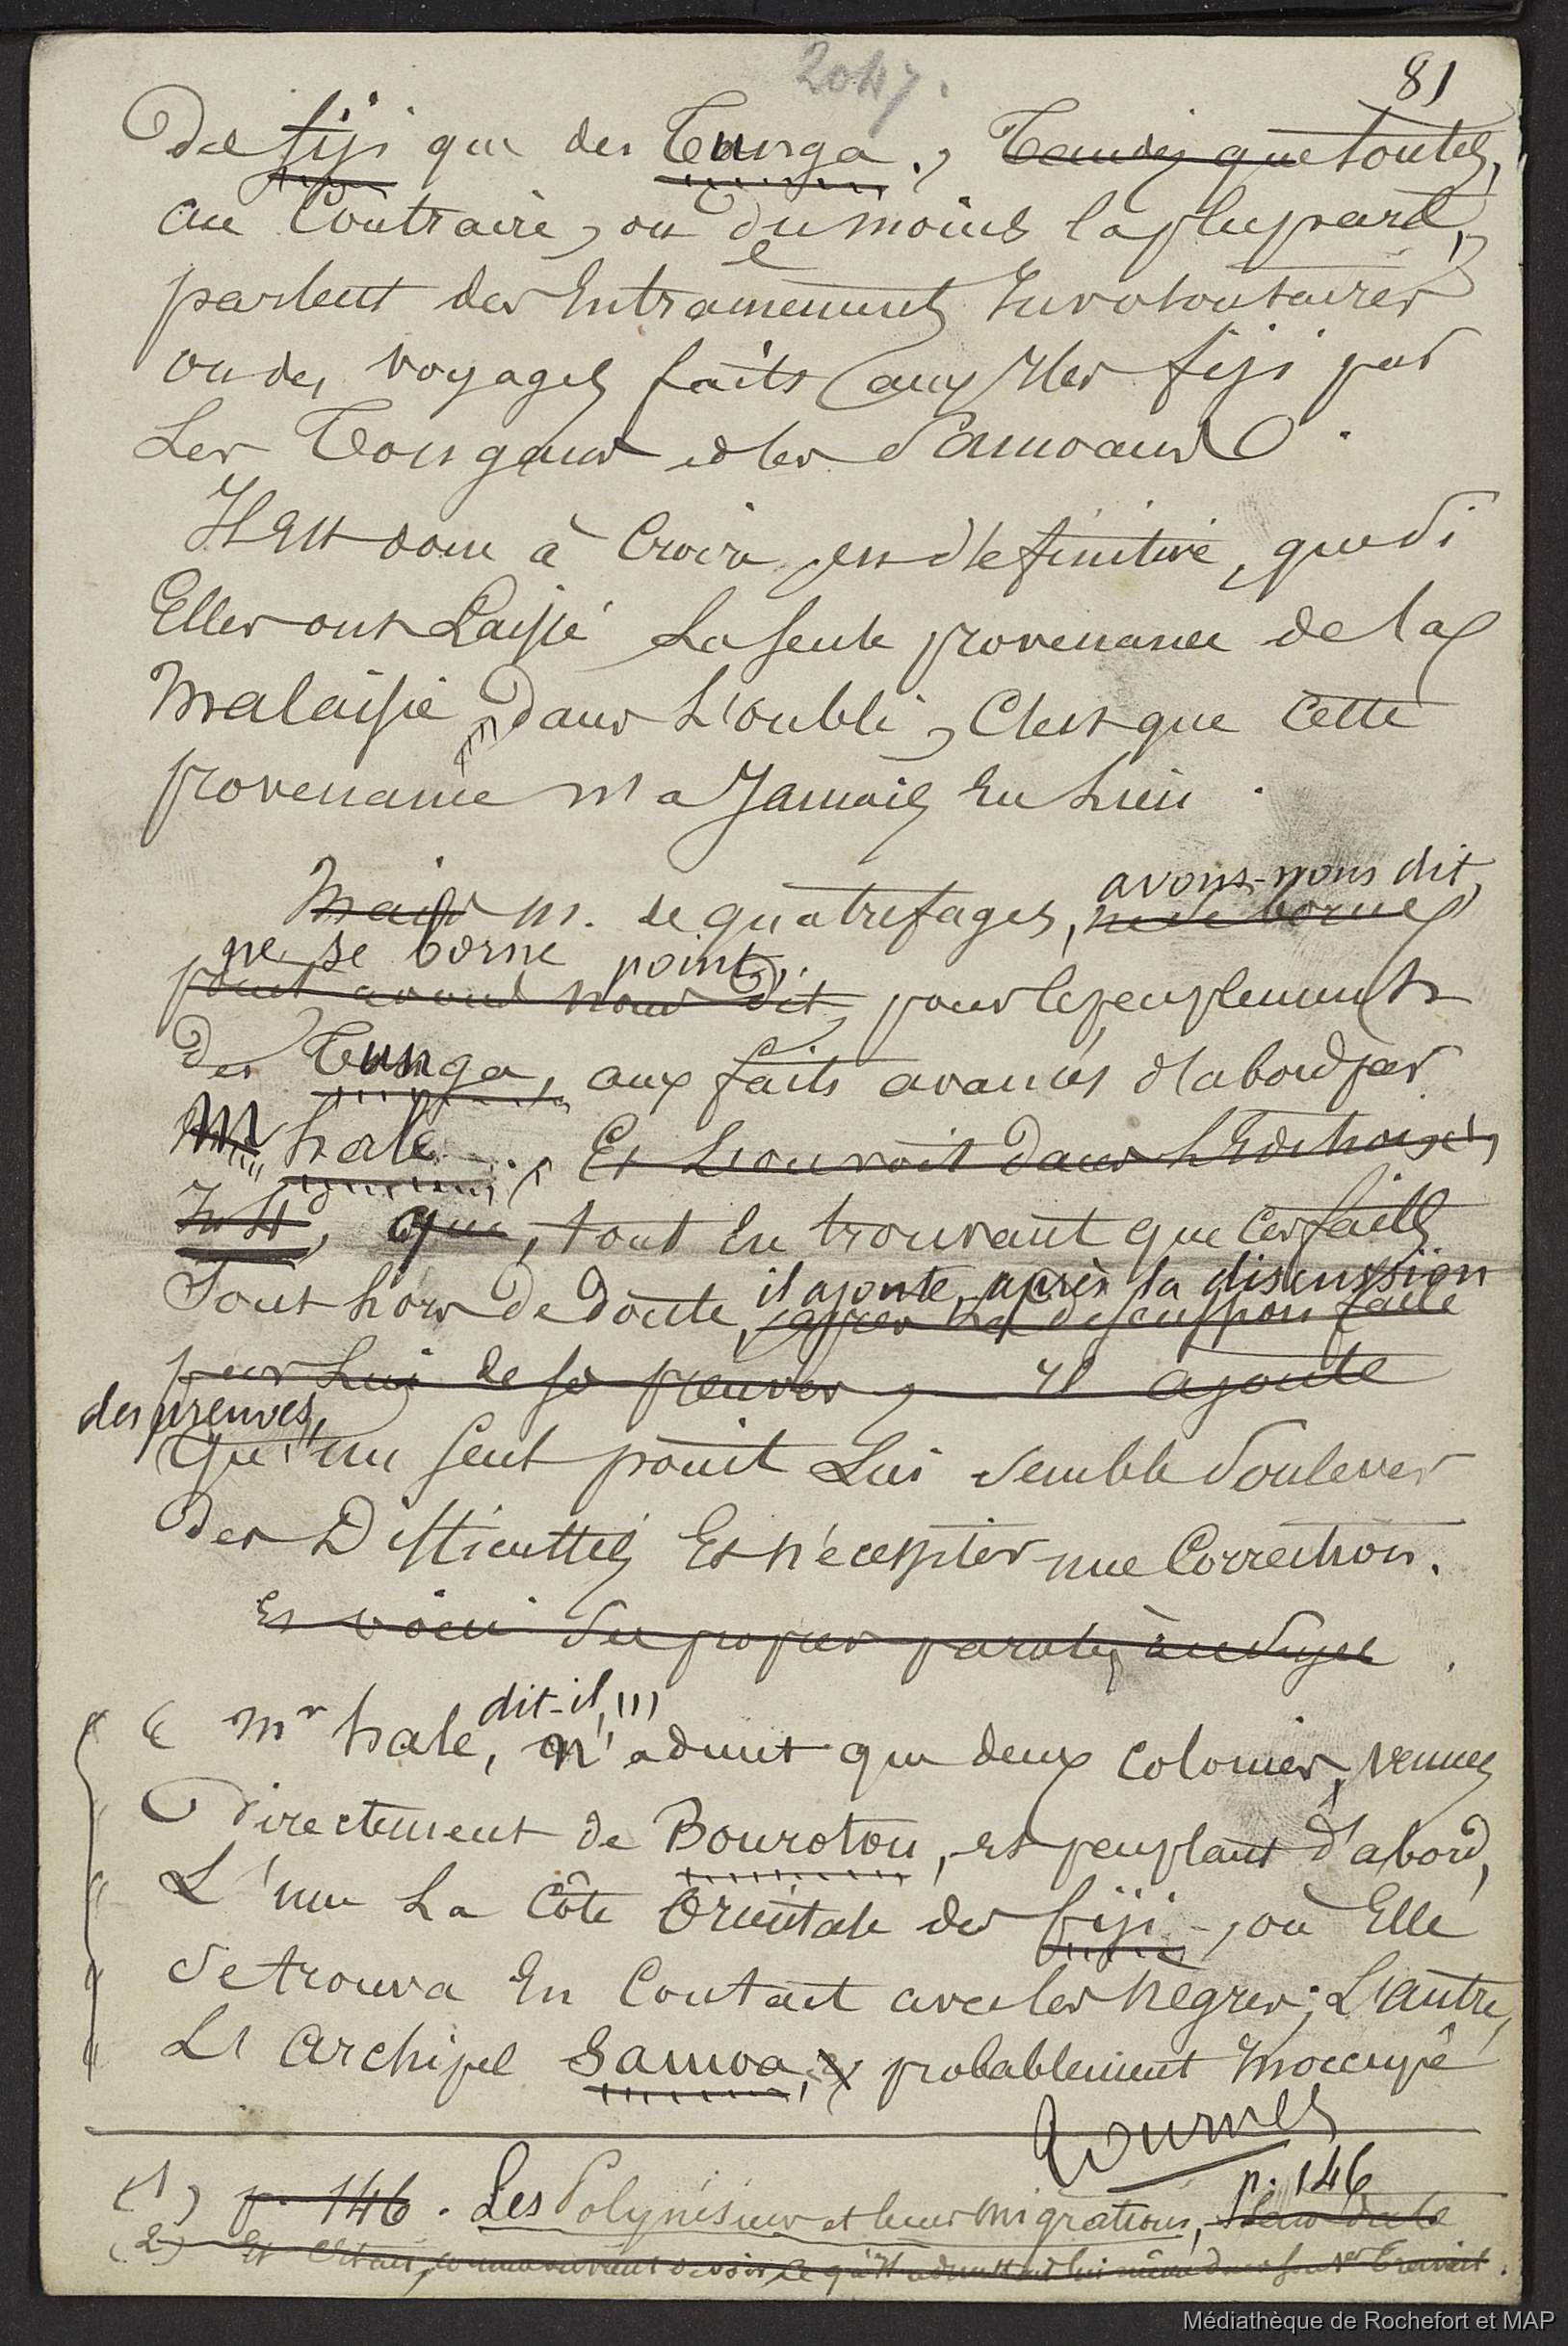 2047.
81
des fiji que des Tunga., Tandis que toutes,
au Contraire, ou du moins la plupart,
parlent des Entrainements Involontaires
ou des voyages faits aux Iles fiji par
Les Tongans et les Samoans.
Il est donc à Croire, en définitive, que Si
Elles ont Laissé La seule provenance de la
Malaisie dans L'oubli, C'est que cette
provenance n'a Jamais Eu Lieu.
avons-nous dit,
Mais M. de quatrefages, ne se borne
ne se borne point,
point avons nous dit, pour le peuplement
des Tunga, aux faits avancés d'abord par
Mr hale., Et L'on voit dans
, que, tout En trouvant que Ces faits
il ajoute, après la discussion
Sont hors de Doute, après La discussion faite
par Lui de ses preuves, Il ajoute
des preuves,
qu'un seul point Lui semble Soulever
des Difficultés Et nécessiter une Correction.
Et voici Ses propres paroles, à ce Sujet.
« Mr hale, dit-il, n'admet que deux Colonies, venues
Directement de Bouroton, et peuplant d'abord,
L'une La Côte Orientale des fiji, où Elle
Se trouva En Contact avec les Nègres; L'autre,
L'Archipel Samoa, probablement Inoccupé
tournez
p. 146
(1) p. 146. Les Polynésiens et leurs migrations,
(2) Et C'était, comme on vient de voir, ce qu'il admettait lui même dans son 1er Travail.